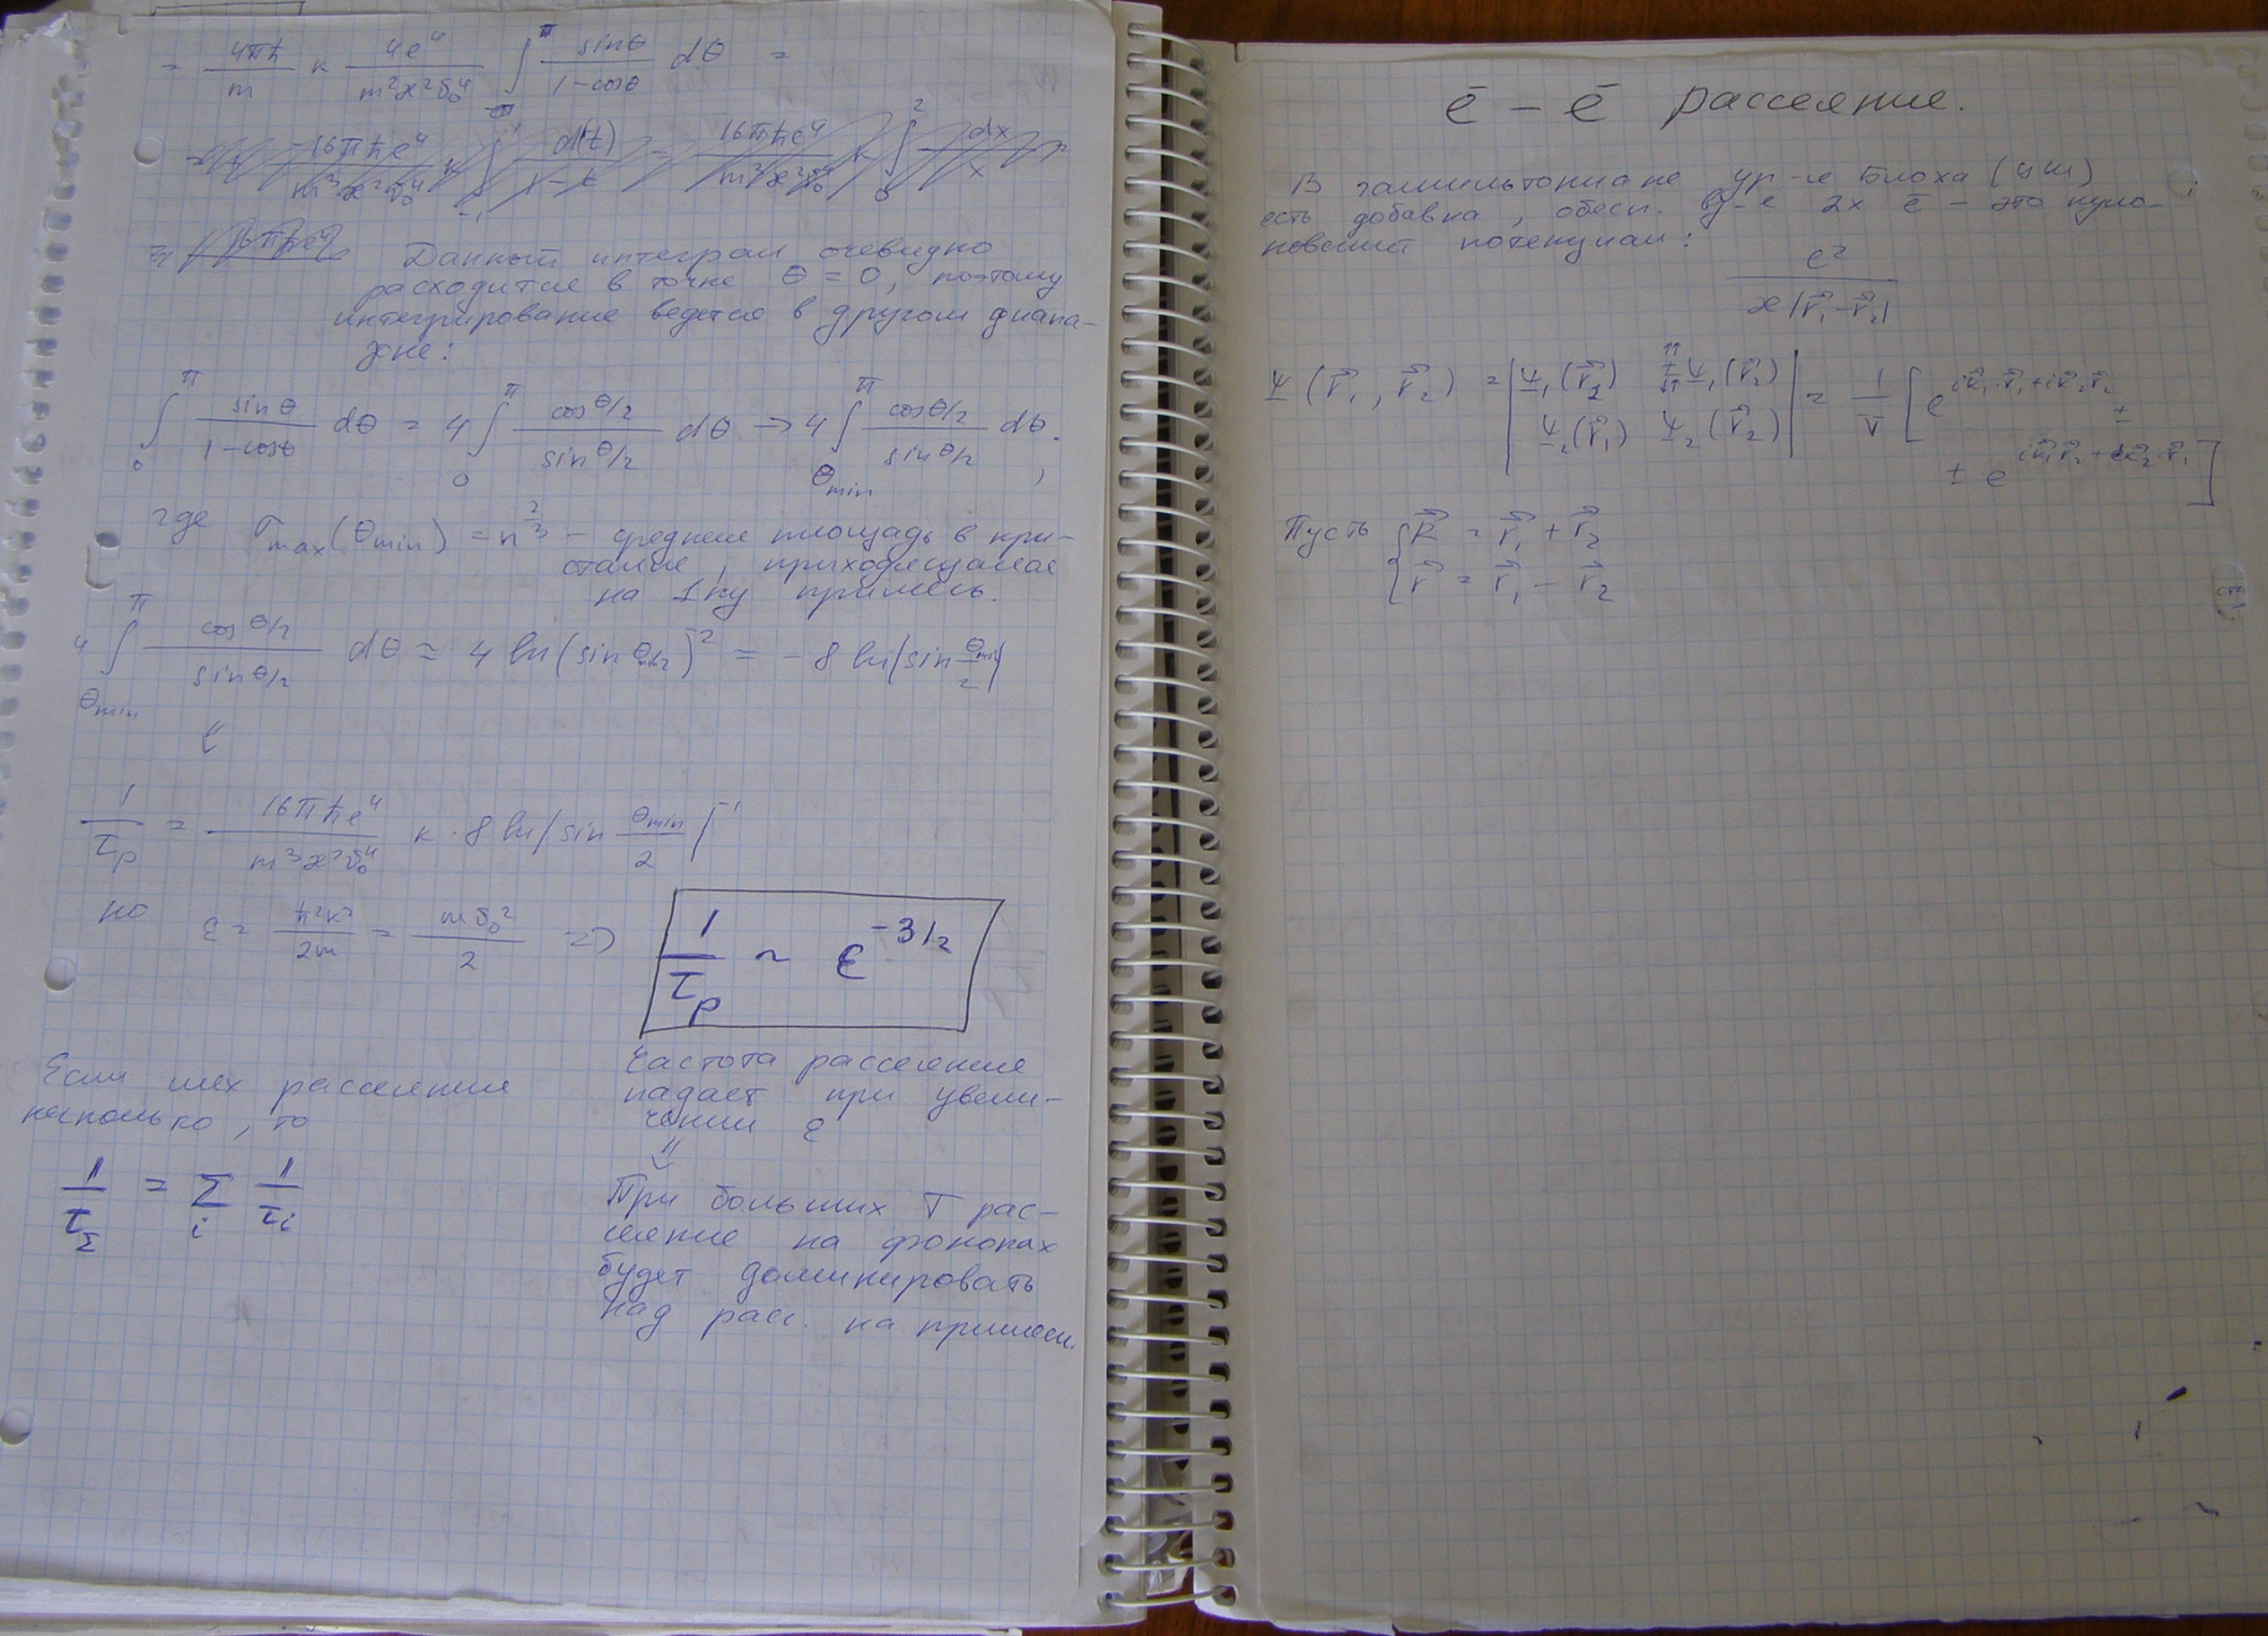 = 4πħ/m k 4e⁴/m²ϰ²v₀⁴ ∫ sinθ/(1-cosθ) dθ =
Данный интеграл очевидно
расходится в точке θ = 0, поэтому
интегрирование ведется в другом диапа-
зоне:
∫₀^π sinθ/(1-cosθ) dθ = 4 ∫₀^π cosθ/2 / sinθ/2 dθ → 4 ∫_θmin^π cosθ/2 / sinθ/2 dθ,
где σmax(θmin) = n^2/3 - среднее площадь в кри-
сталле, приходящаяся
на 1ну примесь.
4 ∫_θmin^π cosθ/2 / sinθ/2 dθ = 4 ln(sin θmin/2)⁻² = -8 ln|sin θmin/2|
1/τp = 16πħe⁴/m³ϰ²v₀⁴ k · 8 ln|sin θmin/2|⁻¹
но ε = ħ²k²/2m = mv₀²/2 => 1/τp ~ ε^-3/2
Частота рассеяния
падает при увели-
чении ε
⇓
При больших T рас-
сеяние на фононах
будет доминировать
над расс. на примеси.
Если мех рассеяния
несколько, то
1/τΣ = Σi 1/τi
ē - ē рассеяние.
В гамильтониане ур-е Блоха (ЧШ)
есть добавка, обесп. вз-е 2х ē - это куло-
новский потенциал:
e²/ϰ|r⃗₁-r⃗₂|
Ψ(r⃗₁, r⃗₂) = |Ψ₁(r⃗₂) ± Ψ₁(r⃗₂) Ψ₂(r⃗₁) Ψ₂(r⃗₂)| = 1/V [e^ik⃗₁·r⃗₁+ik⃗₂r⃗₂ ±
± e^ik⃗₁r⃗₂+ik⃗₂·r⃗₁]
Пусть {R⃗ = r⃗₁ + r⃗₂
r⃗ = r⃗₁ - r⃗₂